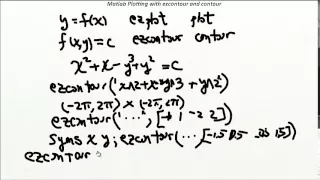 Matlab Plotting with ezcontour and contour
y=f(x) ezplot plot
f(x,y)=c ezcontour contour
x²+x-y³+y²=c
ezcontour('x^2+x-y^3+y^2')
(-2π,2π)×(-2π,2π)
ezcontour('...',[-1 1 -2 2])
syms x y; ezcontour(...,[-1.5 0.5 -.5 1.5])
ezcontour